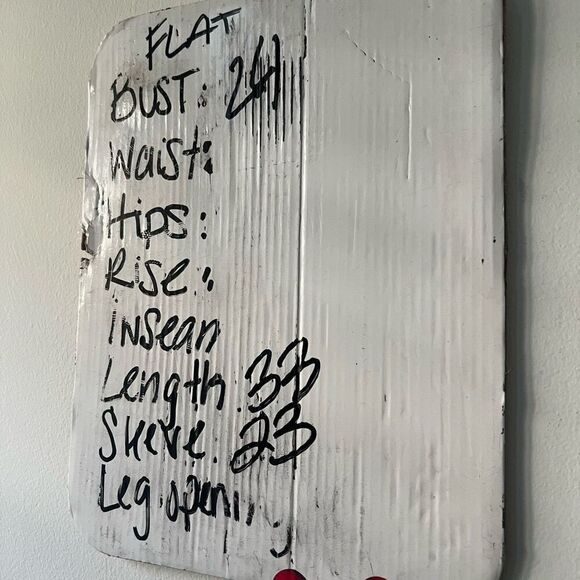 FLAT
BUST: 24
Waist:
Hips:
Rise:
inseam
Length 33
Sleeve. 23
Leg opening